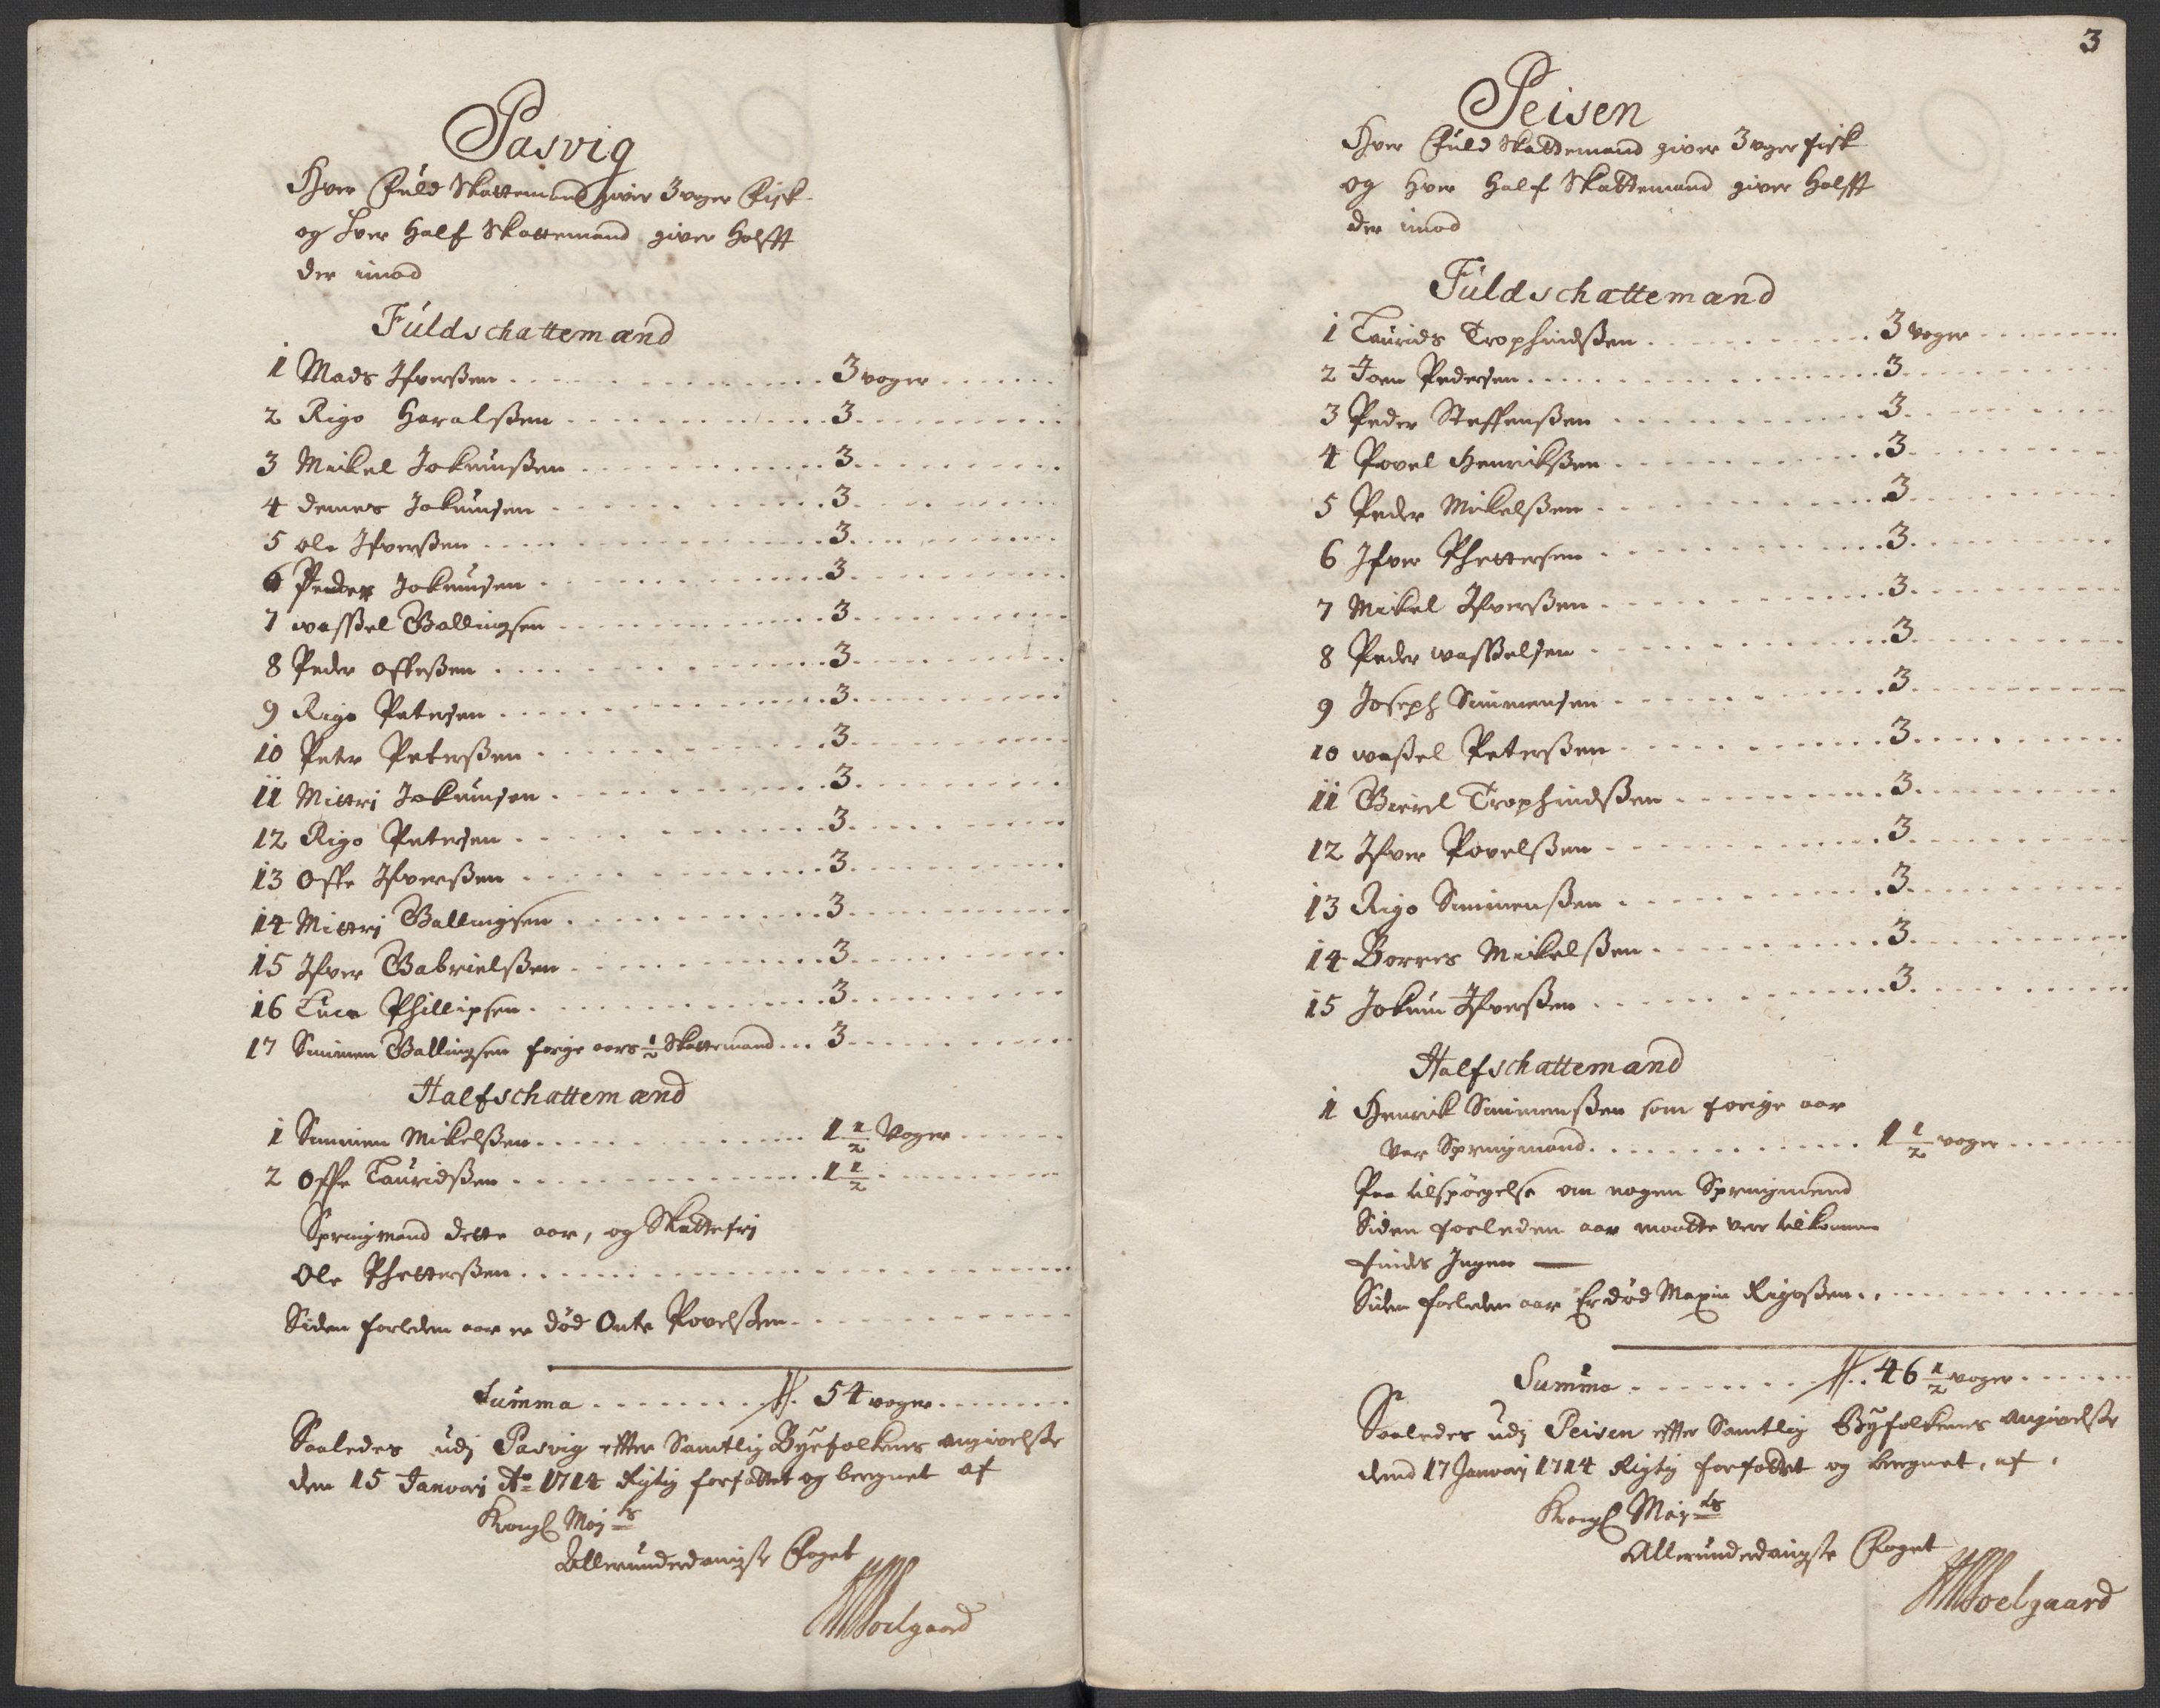 Pasvig
Hver Fuld Skattemand giver 3 voger Fisk
og hver Half Skattemand giver Halfft
der imod
Fuldschattemænd
1 Mads Ifverßen 3 voger
2 Rigo Haralßen 3
3 Mikel Jokumßen 3
4 demes Jokumsen 3
5 ole Ifverßen 3
6 Peder Jokumsen 3
7 waßsel Gallingsen 3
8 Peder offeßen 3
9 Rigo Petersen 3
10 Peter Peterßen 3
11 Mittrj Jokumsen 3
12 Rigo Petersen 3
13 Offe Ifverßen 3
14 Mittrj Gallingsen 3
15 Ifver Gabrielßen 3
16 Luca Phillipsen 3
17 Simmen Gallingsen forige aars ½ Skattemand 3
Halfschattemænd
1 Simmen Mikelßen 1½ Voger
2 Offe Lauridßen 1½
Springmand dette aar, og Skattefrj
Ole Phetterßen
Siden forleden aar er død Onte Povelßen
Summa 54 voger
Saaledes udj Pasvig efter Samtlig Byefolkenes angivelße
den 15 Januarj Ao 1714 Rigtig forfattet og beregnet af
Kongl Mayts
Allerunderdanigste Foget
Soelgaard
3
Peisen
Hver Fuld Skattemand giver 3 voger fisk
og hver Half Skattemand giver Halfft
der imod
Fuldschattemænd
1 Laurids Trophindßen 3 voger
2 Joen Pedersen 3
3 Peder Steffenßen 3
4 Povel Henrikßen 3
5 Peder Mikelßen 3
6 Ifver Phettersen 3
7 Mikel Ifverßen 3
8 Peder waßselsen 3
9 Joseph Simmensen 3
10 waßel Peterßen 3
11 Trophindßen 3
12 Ifver Povelßen 3
13 Rigo Simmenßen 3
14 Borres Mikelßen 3
15 Jokum Ifverßen 3
Halfschattemænd
1 Henrik Simmenßen som forige aar
var Springmand 1½ voger
Paa tilspørgelse om nogen Springmend
Siden forleden aar maatte vere tilkommen
findes Ingen
Siden forleden aar Er død Maxin Rigoßen
Summa 46½ voger
Saaledes udj Peisen effter Samtlig Byfolkenes angivelße
dend 17 Januarj 1714 Rigtig forfattet og beregnet, af
Kongl Mayts
Allerunderdanigste Foget
Soelgaard